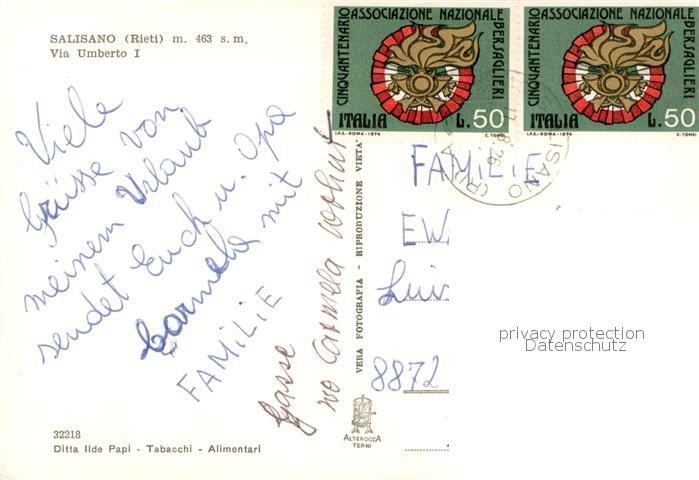 SALISANO (Rieti) m. 463 s. m.
Via Umberto I
Viele
Grüsse von
meinem Urlaub
sendet Euch u. Opa
Carmela mit
FAMILIE
Gasse
wo Carmela wohnt
32218
Ditta Ilde Papi - Tabacchi - Alimentari
VERA FOTOGRAFIA - RIPRODUZIONE VIETATA
ALTEROCCA
TERNI
CINQUANTENARIO ASSOCIAZIONE NAZIONALE BERSAGLIERI
ITALIA L.50
I.P.S.-ROMA-1974 C. TOMEI
CINQUANTENARIO ASSOCIAZIONE NAZIONALE BERSAGLIERI
ITALIA L.50
I.P.S.-ROMA-1974 C. TOMEI
FAMILIE
EW
Luin
8872
privacy protection
Datenschutz